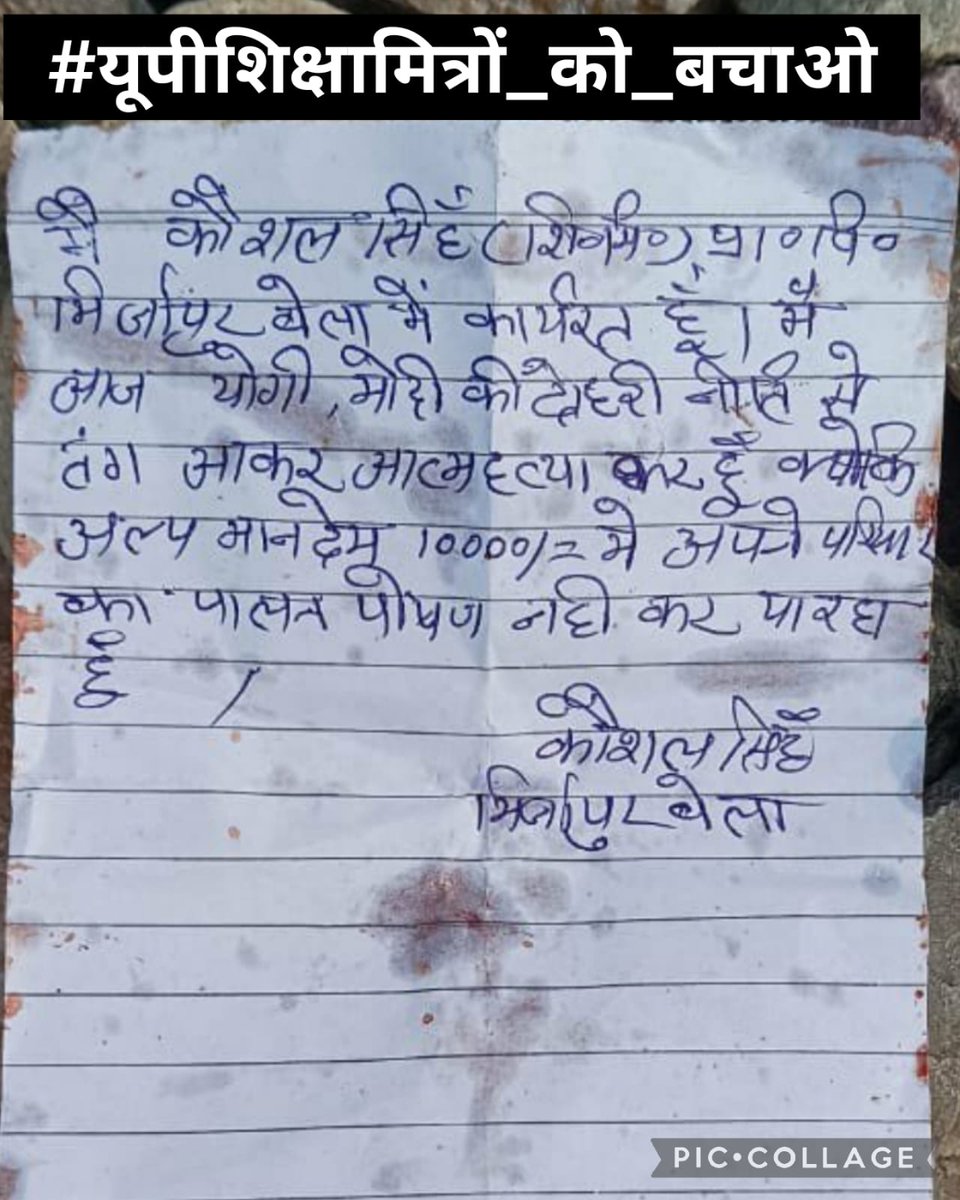 #यूपीशिक्षामित्रों_को_बचाओ
मै कौशल सिहँ (शि०मि०) प्रा०वि०
मिर्जापुर बेला में कार्यरत हूँ। मैं
आज योगी, मोदी की दोहरी नीति से
तंग आकर आत्महत्या कर हूँ क्योकि
अल्प मानदेय 10000/= मे अपने परिवार
का पालन पोषण नही कर पा रहा
हूँ ।
कौशल सिहँ
मिर्जापुर बेला
PIC•COLLAGE